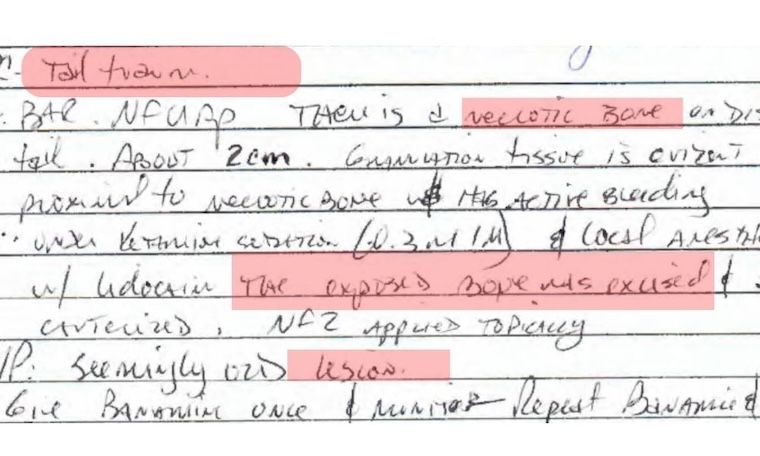 Tail trauma.
BAR. NFUAP There is a necrotic Bone on Dis
tail. About 2cm. Granulation tissue is evident
proximal to necrotic Bone has Active Bleeding
under Ketamine sedation (0.3ml IM) & Local Anesth
w/ lidocaine The exposed Bone was excised &
cauterized. NFZ Applied Topically
/P: Seemingly old lesion.
Give Banamine once & monitor Repeat Banamine